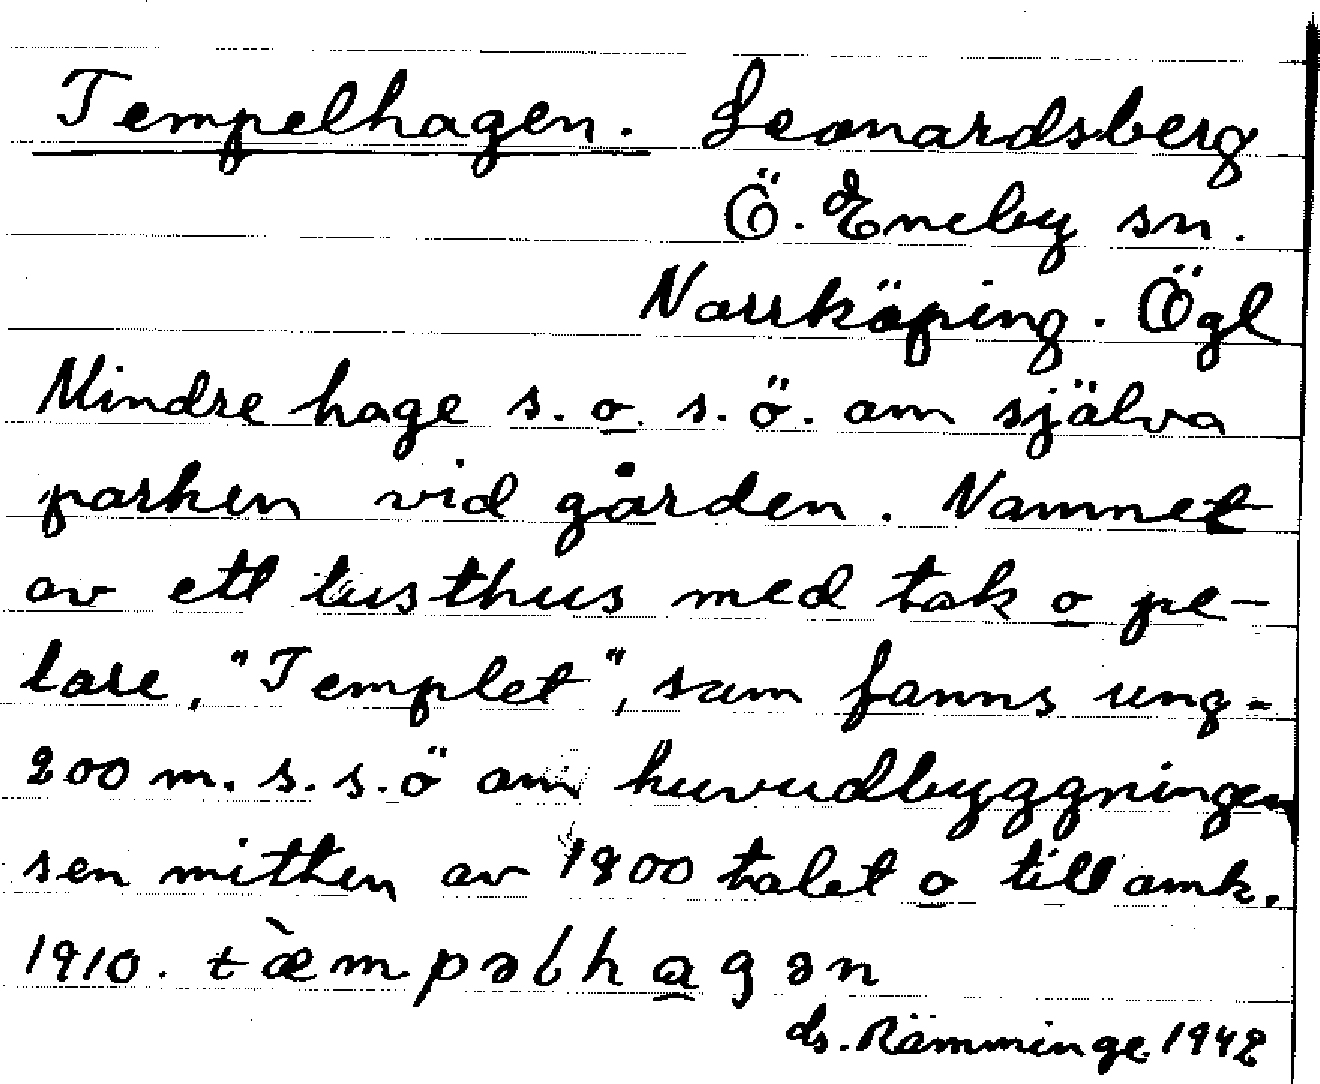 Tempelhagen. Leonardsberg
Ö. Eneby sn.
Norrköping. Ögl
Mindre hage s. o. s. ö. om själva
parken vid gården. Namnet
av ett lusthus med tak o pe-
lare, "Templet", som fanns ung-
200 m. s. s. ö om huvudbyggningen
sen mitten av 1800 talet o till omk.
1910. tæ̀mpəlhagən
ds. Rämminge 1942